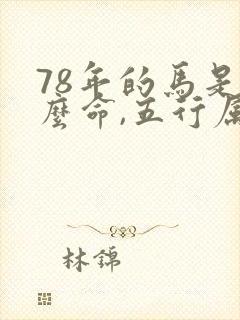 78年的馬是
麼命,五行屬
林錦